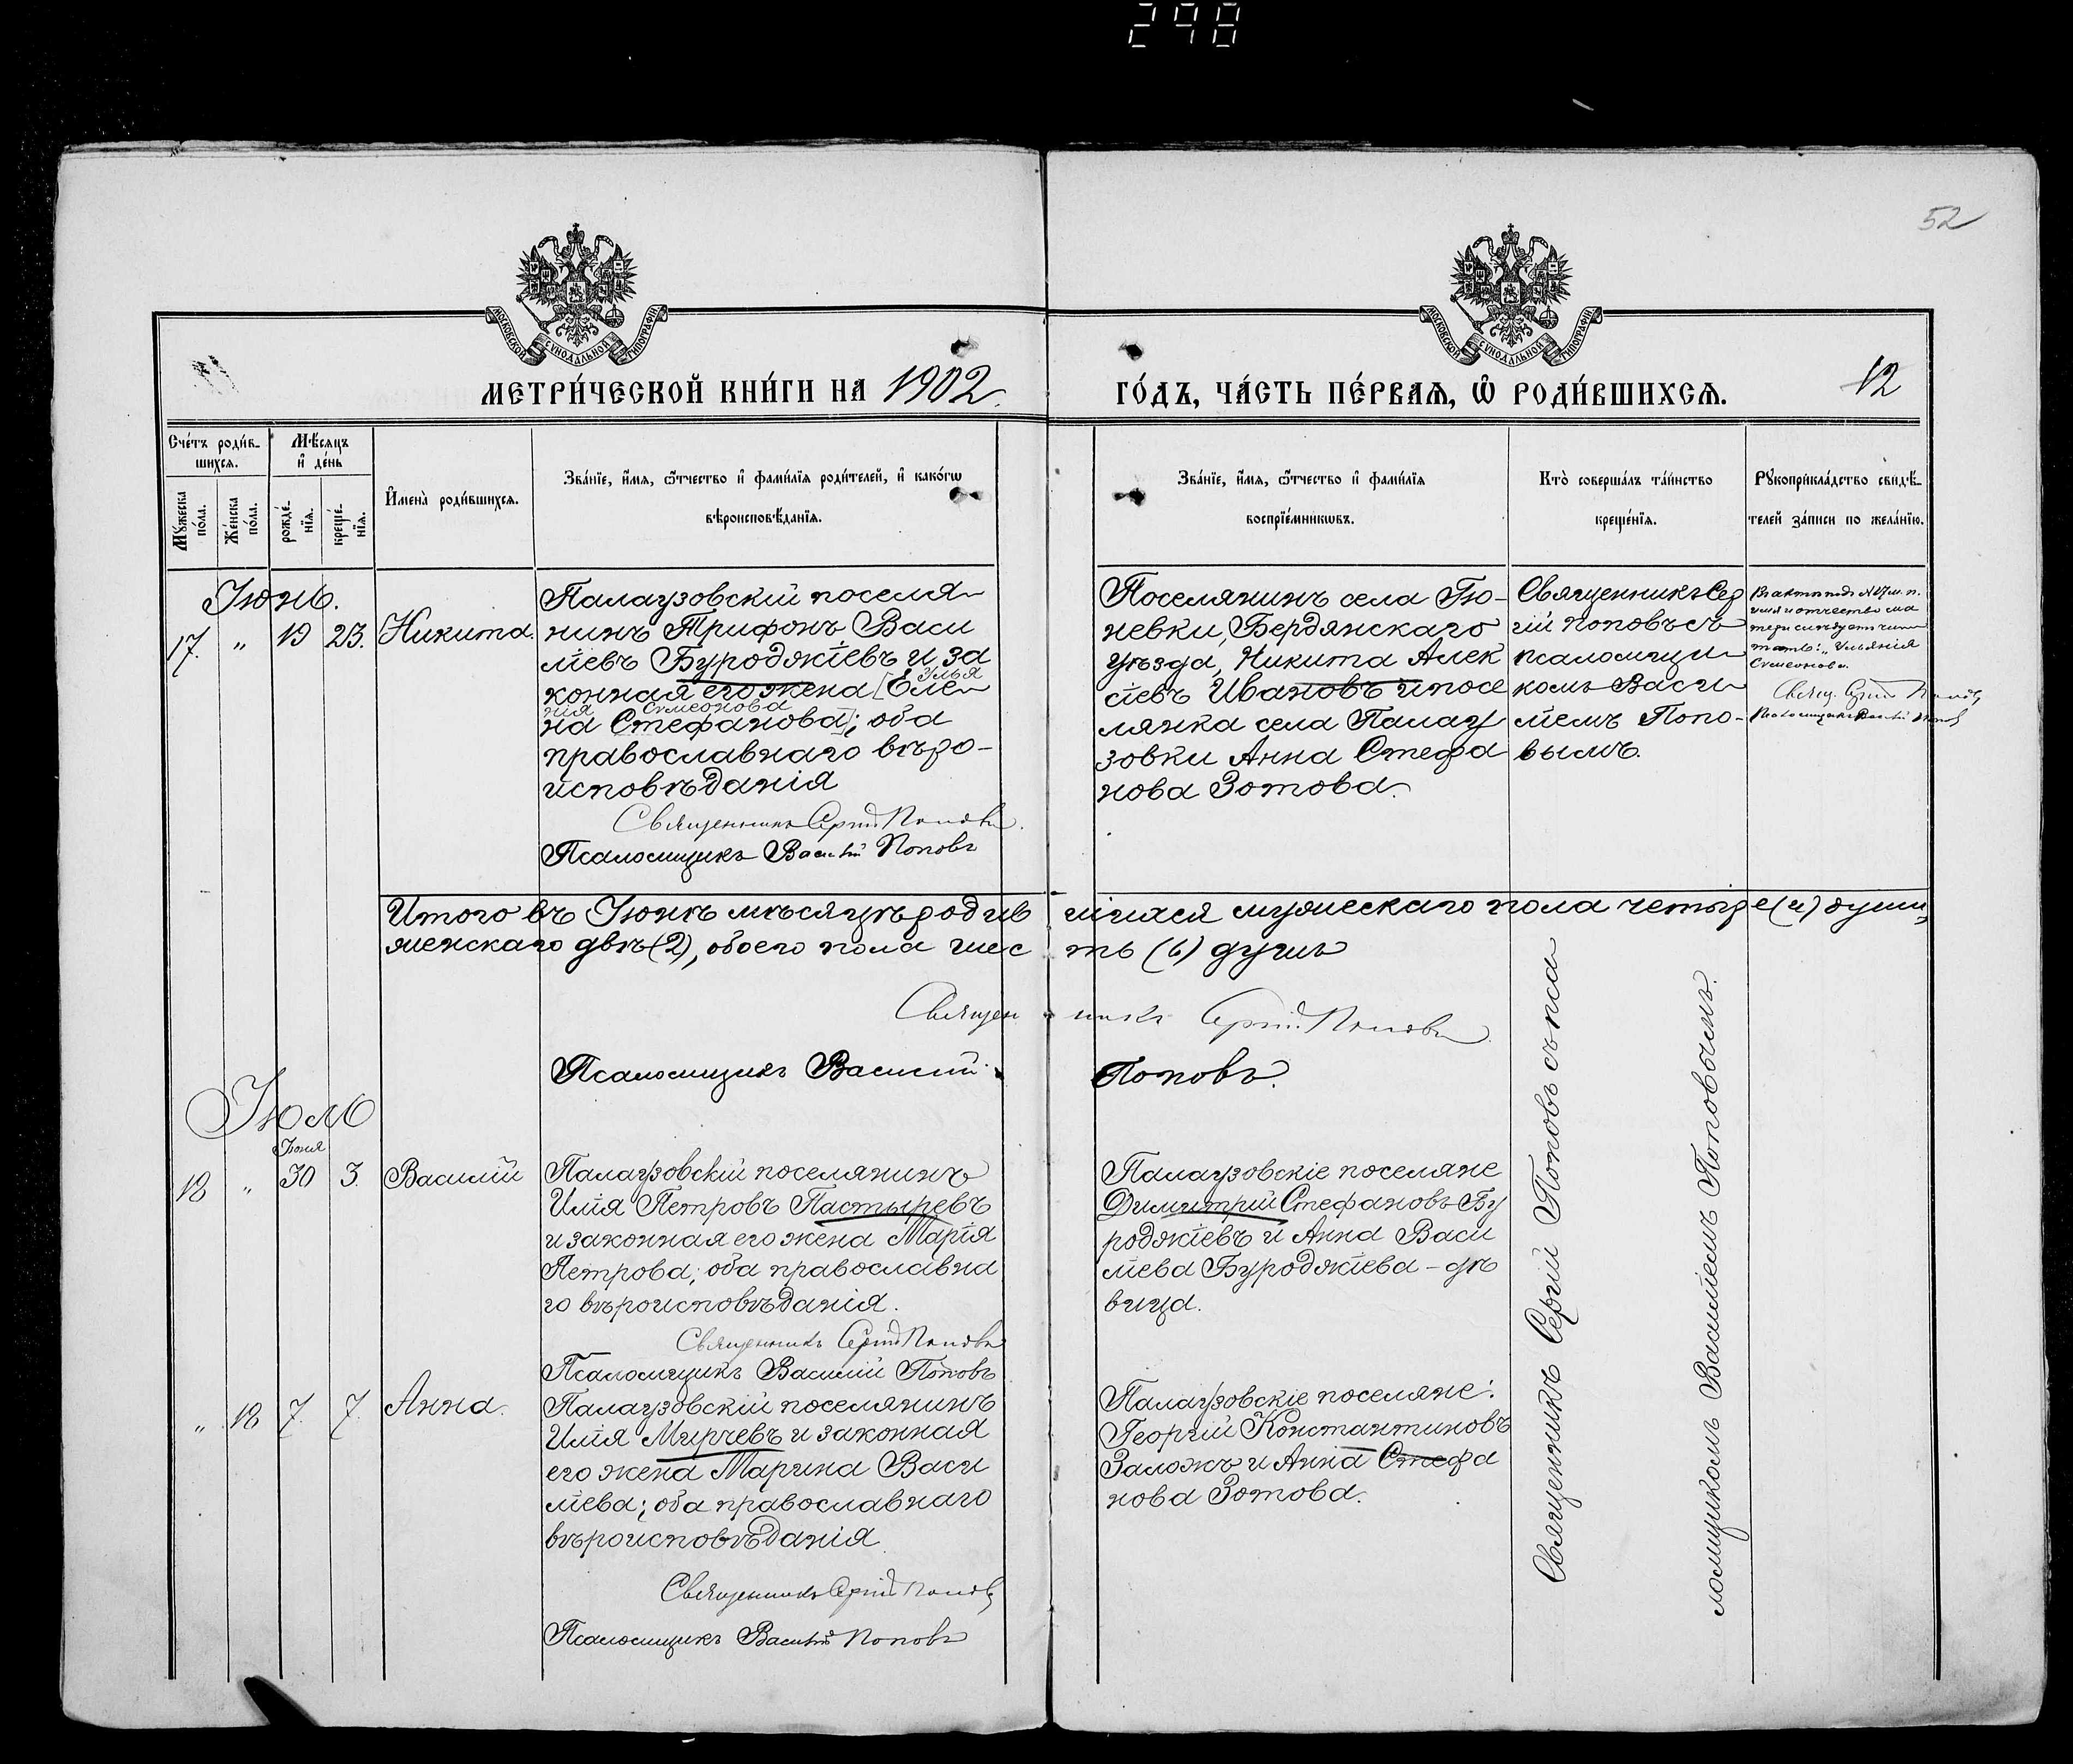 298
52
МОСКОВСКОЙ СУНОДАЛЬНОЙ ТИПОГРАФІИ
МОСКОВСКОЙ СУНОДАЛЬНОЙ ТИПОГРАФІИ
МЕТРИ́ЧЕСКОЙ КНИ́ГИ НА 1902
ГО́ДЪ, ЧА́СТЬ ПЕ́РВАѦ, Ѡ҆ РОДИ́ВШИХСѦ.
12
Сче́тъ роди́в-
шихсѧ.
Мѣ́сѧцъ
и҆ де́нь
Мꙋ́жеска
по́ла.
Же́нска
по́ла.
рожде́-
нїѧ.
креще́-
нїѧ.
И҆мена̀ роди́вшихсѧ.
Зва́нїе, и҆́мѧ, ѻ҆́тчество и҆ фами́лїѧ роди́телей, и҆ како́гѡ
вѣроисповѣ́данїѧ.
Зва́нїе, и҆́мѧ, ѻ҆́тчество и҆ фами́лїѧ
воспрїе́мникѡвъ.
Кто̀ соверша́лъ та́инство
креще́нїѧ.
Рꙋкоприкла́дство свидѣ́-
телей за́писи по жела́нїю.
Іюнь.
17. „ 19 23. Никита.
Палаузовскій поселя-
нинъ Трифонъ Васи
ліевъ Буроджіевъ и за
конная его жена [Еле-
Улья
нія Симеонова
на Стефанова]; оба
православнаго вѣро-
исповѣданія
Священникъ Сергій Поповъ.
Псаломщикъ Василій Поповъ
Поселянинъ села Гю-
невки, Бердянскаго
уѣзда, Никита Алек
сіевъ Ивановъ и посе
лянка села Палау
зовки Анна Стефа
нова Зотова.
Священникъ Сер
гій Поповъ съ
псаломщи-
комъ Васи-
ліемъ Попо-
вымъ.
Въ актѣ подъ №17 м. п.
имя и отчество ма
тери слѣдуетъ чи
тать: „Ульянія
Симеонова.
Свящ. Сергій Поповъ
Псаломщикъ Василій Поповъ
Итого въ Іюнѣ мѣсяцѣ родив шихся мужескаго пола четыре (4) души,
женскаго двѣ (2), обоего пола шес ть (6) душъ
Священ никъ Сергій Поповъ
Псаломщикъ Василій Поповъ.
Іюль
Іюня
18 „ 30 3. Василій
Палаузовскій поселянинъ
Илія Петровъ Пастыревъ
и законная его жена Марія
Петрова; оба православна
го вѣроисповѣданія.
Священникъ Сергій Поповъ
Псаломщикъ Василій Поповъ
Палаузовскіе поселяне
Димитрій Стефановъ Бу
роджіевъ и Анна Васи
ліева Буроджіева – дѣ
вица.
„ 18 7. 7. Анна.
Палаузовскій поселянинъ
Илія Мирчевъ и законная
его жена Марина Васи
ліева; оба православнаго
вѣроисповѣданія.
Священникъ Сергій Поповъ
Псаломщикъ Василій Поповъ
Палаузовскіе поселяне:
Георгій Константиновъ
Заложъ и Анна Стефа
нова Зотова.
Священникъ Сергій Поповъ съ пса
ломщикомъ Василіемъ Поповымъ.